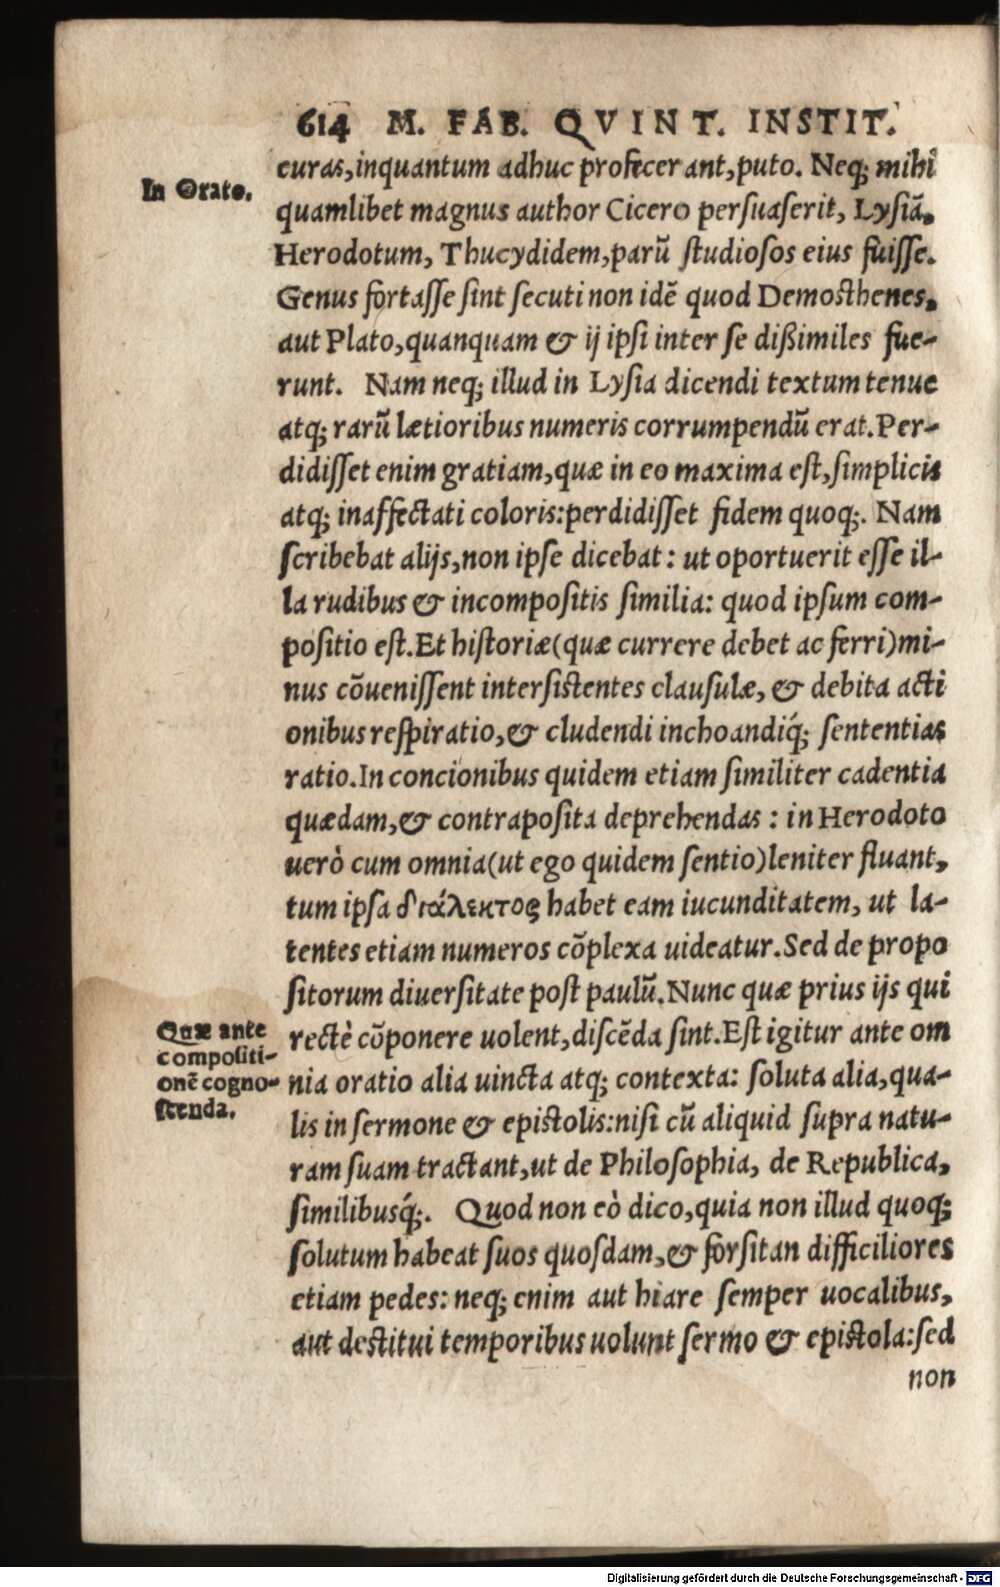 614 M. FAB. QVINT. INSTIT.
In Orato.
curas,inquantum adhuc profecerant,puto. Neq; mihi
quamlibet magnus author Cicero persuaserit, Lysiā,
Herodotum, Thucydidem,parū studiosos eius fuisse.
Genus fortasse sint secuti non idē quod Demosthenes,
aut Plato,quanquam & ij ipsi inter se dißimiles fue-
runt. Nam neq; illud in Lysia dicendi textum tenue
atq; rarū lætioribus numeris corrumpendū erat.Per-
didisset enim gratiam,quæ in eo maxima est,simplicis
atq; inaffectati coloris:perdidisset fidem quoq;. Nam
scribebat alijs,non ipse dicebat: ut oportuerit esse il-
la rudibus & incompositis similia: quod ipsum com-
positio est.Et historiæ(quæ currere debet ac ferri)mi-
nus cōuenissent intersistentes clausulæ, & debita acti
onibus respiratio,& cludendi inchoandiq́; sententias
ratio.In concionibus quidem etiam similiter cadentia
quædam,& contraposita deprehendas : in Herodoto
uerò cum omnia(ut ego quidem sentio)leniter fluant,
tum ipsa διάλεκτος habet eam iucunditatem, ut la-
tentes etiam numeros cōplexa uideatur.Sed de propo
sitorum diuersitate post paulū.Nunc quæ prius ijs qui
Quæ ante
compositi-
onē cogno-
scenda.
rectè cōponere uolent,discēda sint.Est igitur ante om
nia oratio alia uincta atq; contexta: soluta alia,qua-
lis in sermone & epistolis:nisi cū aliquid supra natu-
ram suam tractant,ut de Philosophia, de Republica,
similibusq́;. Quod non eò dico,quia non illud quoq;
solutum habeat suos quosdam,& forsitan difficiliores
etiam pedes: neq; enim aut hiare semper uocalibus,
aut destitui temporibus uolunt sermo & epistola:sed
non
Digitalisierung gefördert durch die Deutsche Forschungsgemeinschaft - DFG